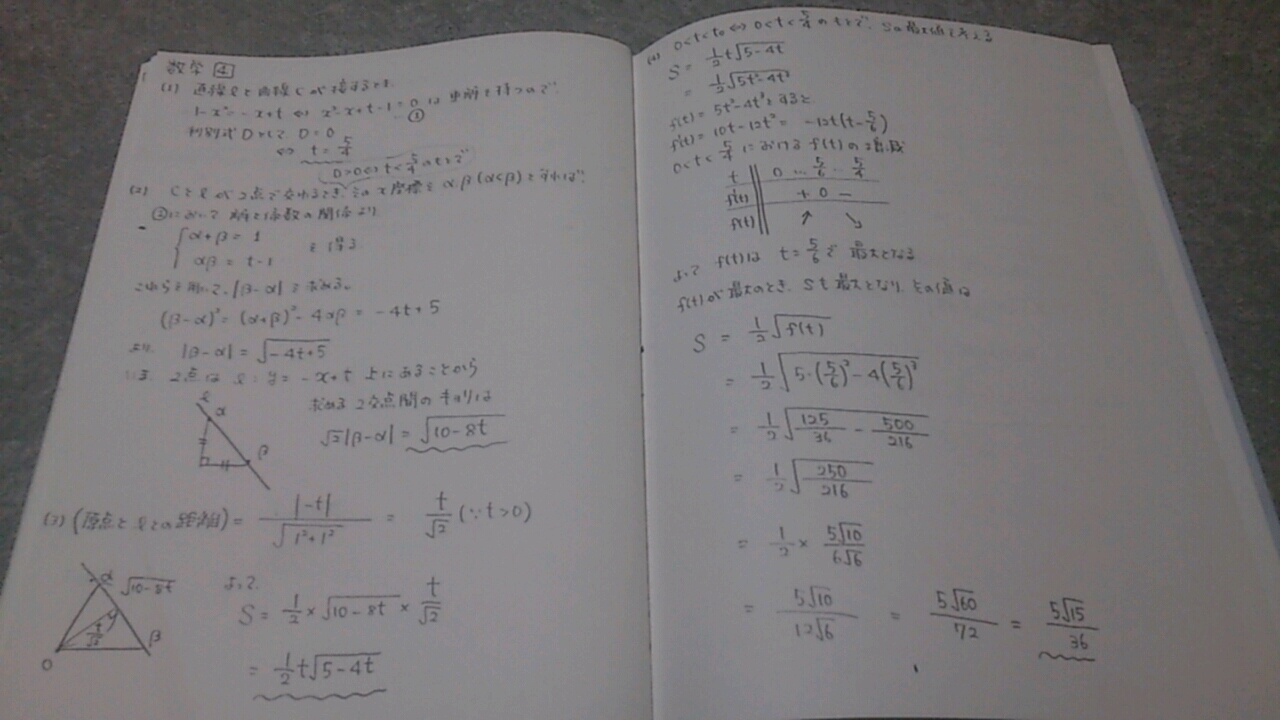 数学 4
(1) 直線ℓと曲線Cが接するとき
1-x²=-x+t ⇔ x²-x+t-1=0 は重解を持つので
…①
判別式Dとして D=0
⇔ t=5/4
D>0⇔t<5/4のもとで
(2) Cとℓが2点で交わるとき、そのx座標をα,β(α<β)とすれば、
①において解と係数の関係より
α+β=1
αβ=t-1
を得る
これらを用いて、|β-α|を求める。
(β-α)²=(α+β)²-4αβ=-4t+5
より |β-α|=√(-4t+5)
いま 2点は ℓ:y=-x+t 上にあることから
求める2交点間のキョリは
√2|β-α|=√(10-8t)
ℓ
α
β
(3) (原点とℓとの距離)=|-t|/√(1²+1²)=t/√2 (∵t>0)
α √(10-8t)
t/√2
β
O
よって
S=1/2×√(10-8t)×t/√2
=1/2t√(5-4t)
(4) 0<t<t₀⇔0<t<5/4のもとで、Sの最大値を考える
S=1/2t√(5-4t)
=1/2√(5t²-4t³)
f(t)=5t²-4t³とすると
f'(t)=10t-12t²=-12t(t-5/6)
0<t<5/4におけるf(t)の増減
t 0 … 5/6 … 5/4
f'(t) + 0 -
f(t) ↗ ↘
よって f(t)は t=5/6で 最大となる
f(t)が最大のとき、Sも最大となり、その値は
S=1/2√f(t)
=1/2√(5・(5/6)²-4(5/6)³)
=1/2√(125/36-500/216)
=1/2√(250/216)
=1/2×5√10/6√6
=5√10/12√6=5√60/72=5√15/36